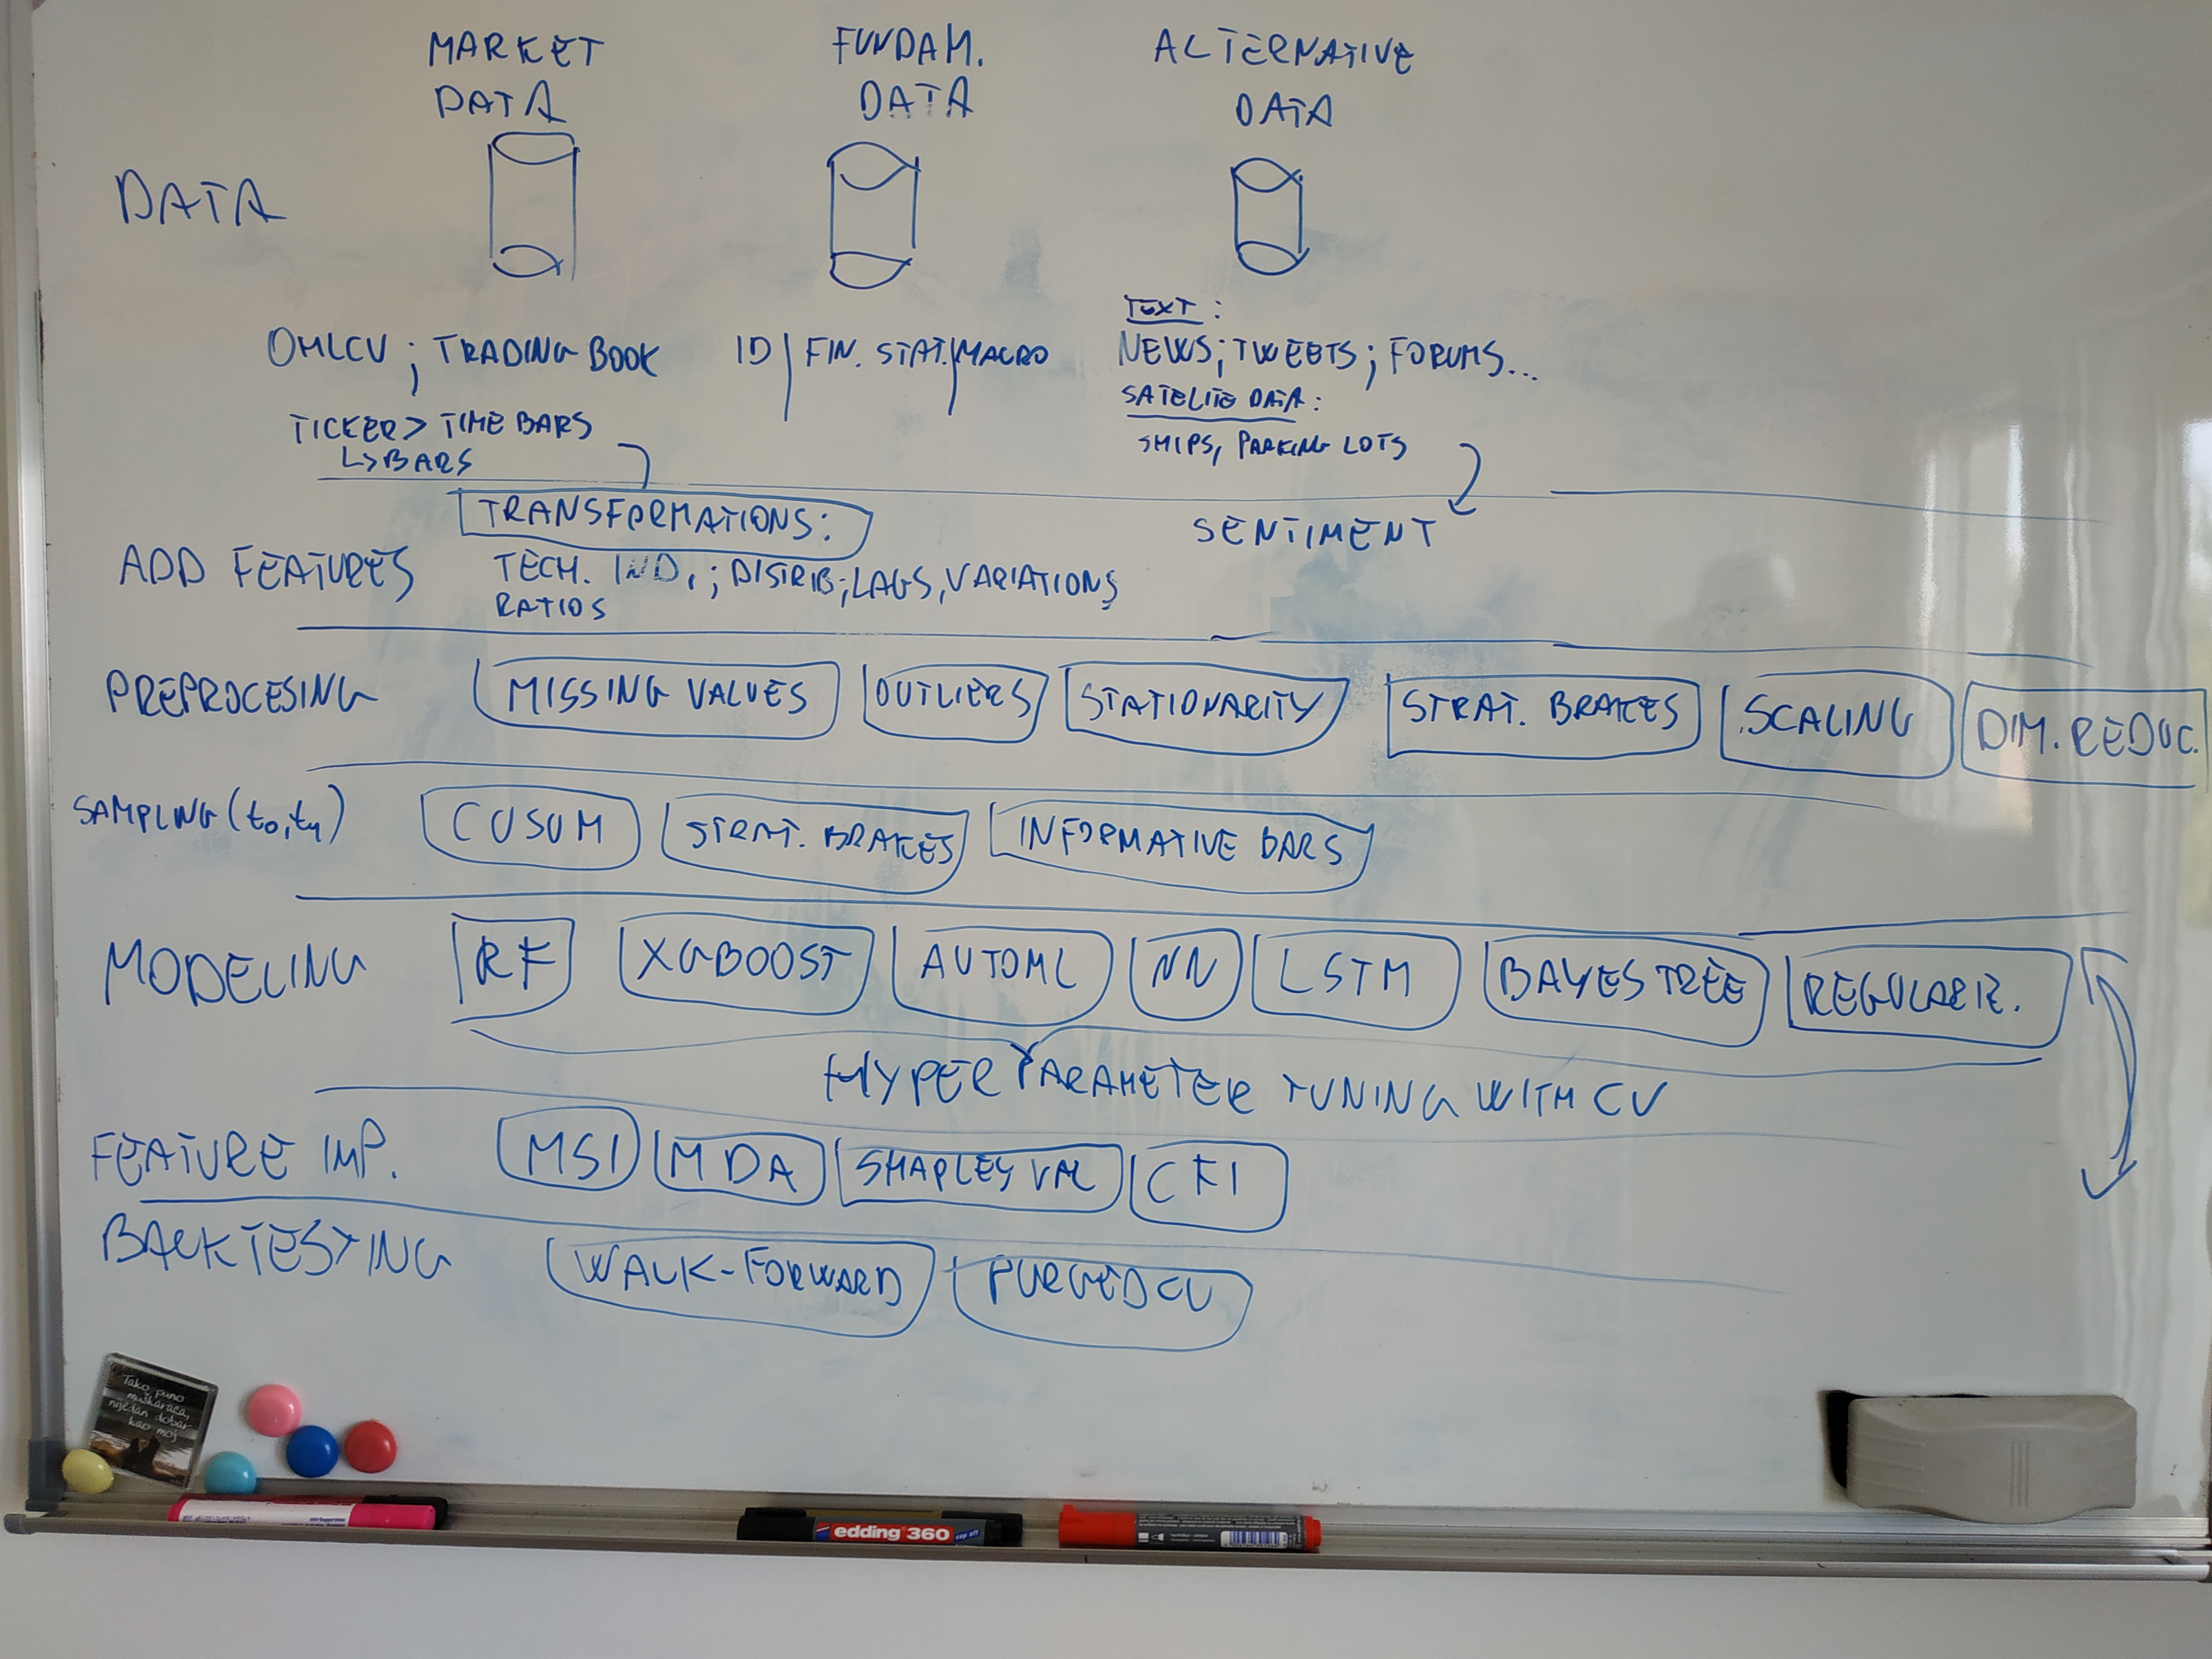 MARKET
DATA
FUNDAM.
DATA
ALTERNATIVE
DATA
DATA
OHLCV ; TRADING BOOK
ID | FIN. STAT. | MACRO
TEXT :
NEWS; TWEETS; FORUMS...
SATELITE DATA :
SHIPS, PARKING LOTS
TICKER > TIME BARS
L> BARS
TRANSFORMATIONS:
SENTIMENT
ADD FEATURES
TECH. IND. ; DISTRIB; LAGS, VARIATIONS
RATIOS
PREPROCESING
MISSING VALUES
OUTLIERS
STATIONARITY
STRAT. BRAKES
SCALING
DIM. REDUC.
SAMPLING (t0, t1)
CUSUM
STRAT. BRAKES
INFORMATIVE BARS
MODELING
RF
XGBOOST
AUTOML
NN
LSTM
BAYES TREE
REGULARIZ.
HYPER PARAMETER TUNING WITH CV
FEATURE IMP.
MSI
MDA
SHAPLEY VAL
CFI
BACKTESTING
WALK-FORWARD
PURGED CV
Tako puno
muškaraca,
nijedan dobar
kao moj
edding 360
cap off